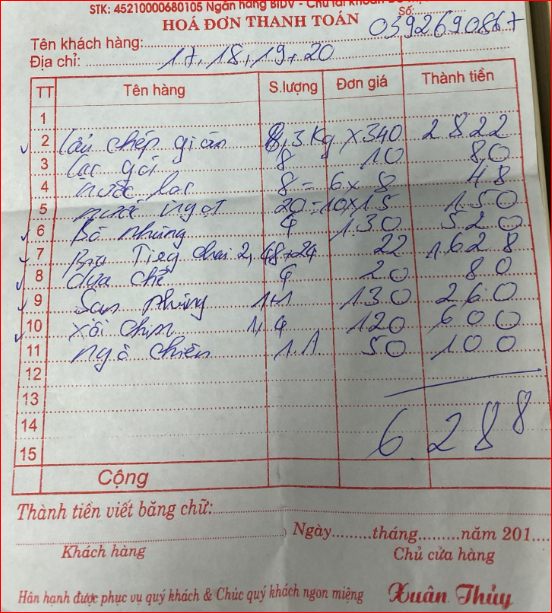 STK: 45210000680105 Ngân hàng BIDV - Chủ tài khoản
HOÁ ĐƠN THANH TOÁN
Số: 0392690867
Tên khách hàng:
Địa chỉ: 17, 18, 19, 20
TT Tên hàng S.lượng Đơn giá Thành tiền
1
2 lẩu chép giòn 8,3 Kg x 340 2822
3 lạc gói 8 10 80
4 nước lọc 8 = 6 x 8 48
5 nước ngọt 20 = 10 x 15 150
6 Bò nhúng 4 130 520
7 Bia Tiger chai 2, 48+24 22 1.628
8 dừa chế 4 20 80
9 San nhúng 1+1 130 260
10 xôi chim 1, 4 120 600
11 ngô chiên 1.1 50 100
12
13
14
15
6.288
Cộng
Thành tiền viết bằng chữ:
Ngày.........tháng.........năm 201....
Khách hàng Chủ cửa hàng
Hân hạnh được phục vụ quý khách & Chúc quý khách ngon miệng Xuân Thủy